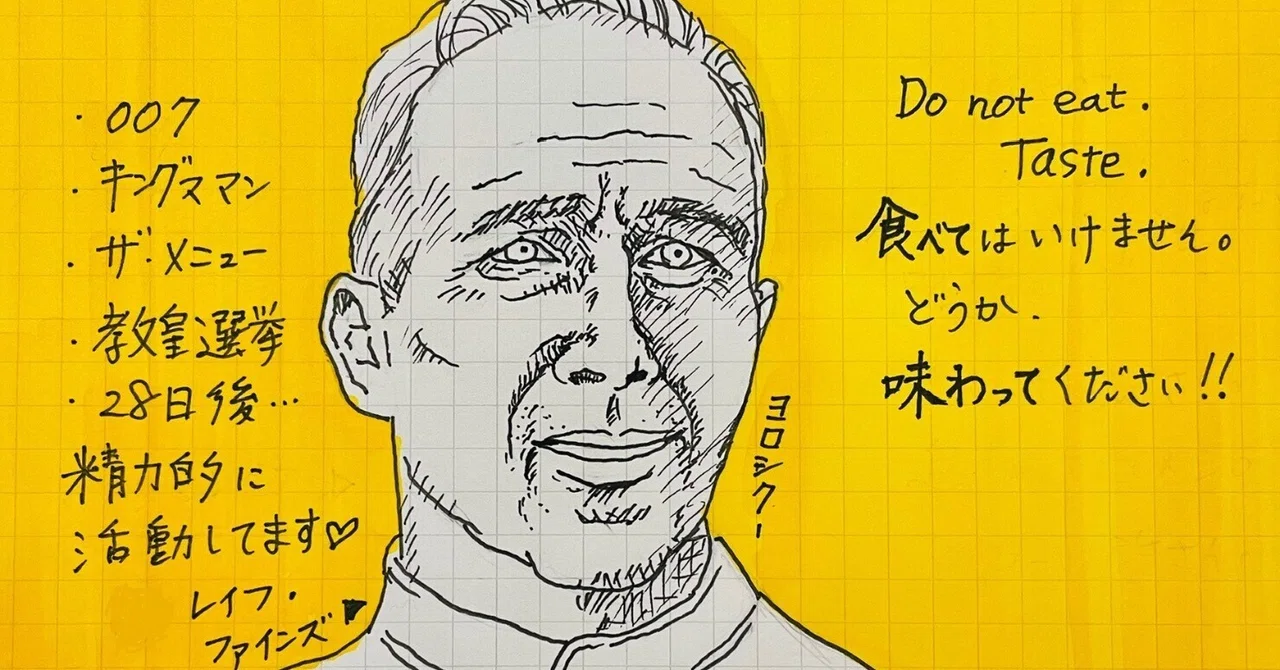 ・007
・キングスマン
・ザ・メニュー
・教皇選挙
・28日後…
精力的に
活動してます♡
レイフ・
ファインズ
Do not eat.
Taste.
食べてはいけません。
どうか.
味わってください!!
ヨロシクー